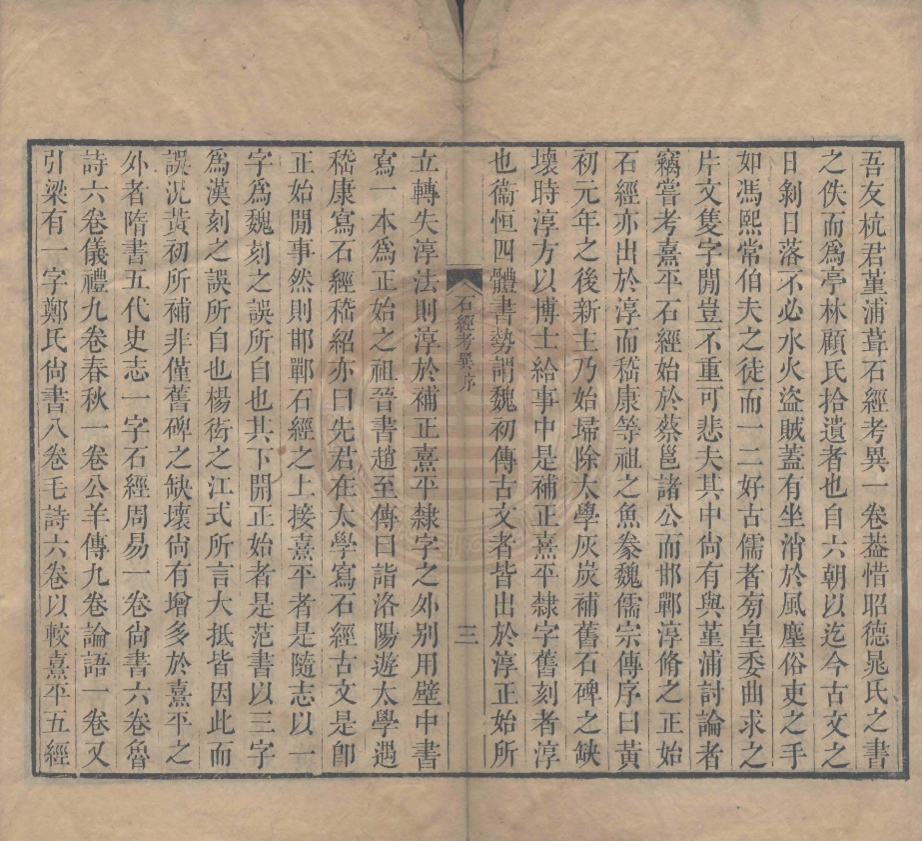 吾友杭君堇浦葺石經考異一卷葢惜昭德晁氏之書
之佚而爲亭林顧氏拾遺者也自六朝以迄今古文之
日剝日落不必水火盜賊蓋有坐消於風塵俗吏之手
如馮熙常伯夫之徒而一二好古儒者旁皇委曲求之
片文隻字閒豈不重可悲夫其中尙有與堇浦討論者
竊嘗考熹平石經始於蔡邕諸公而邯鄲淳脩之正始
石經亦出於淳而嵇康等祖之魚豢魏儒宗傳序曰黃
初元年之後新主乃始埽除太學灰炭補舊石碑之缺
壞時淳方以博士給事中是補正熹平隸字舊刻者淳
也衞恒四體書勢謂魏初傳古文者皆出於淳正始所
石經考異序
三
立轉失淳法則淳於補正熹平隸字之外別用壁中書
寫一本爲正始之祖晉書趙至傳曰詣洛陽遊太學遇
嵇康寫石經嵇紹亦曰先君在太學寫石經古文是卽
正始閒事然則邯鄲石經之上接熹平者是隨志以一
字爲魏刻之誤所自也其下開正始者是范書以三字
爲漢刻之誤所自也楊衒之江式所言大抵皆因此而
誤況黃初所補非僅舊碑之缺壞尙有增多於熹平之
外者隋書五代史志一字石經周易一卷尙書六卷魯
詩六卷儀禮九卷春秋一卷公羊傳九卷論語一卷又
引梁有一字鄭氏尙書八卷毛詩六卷以較熹平五經